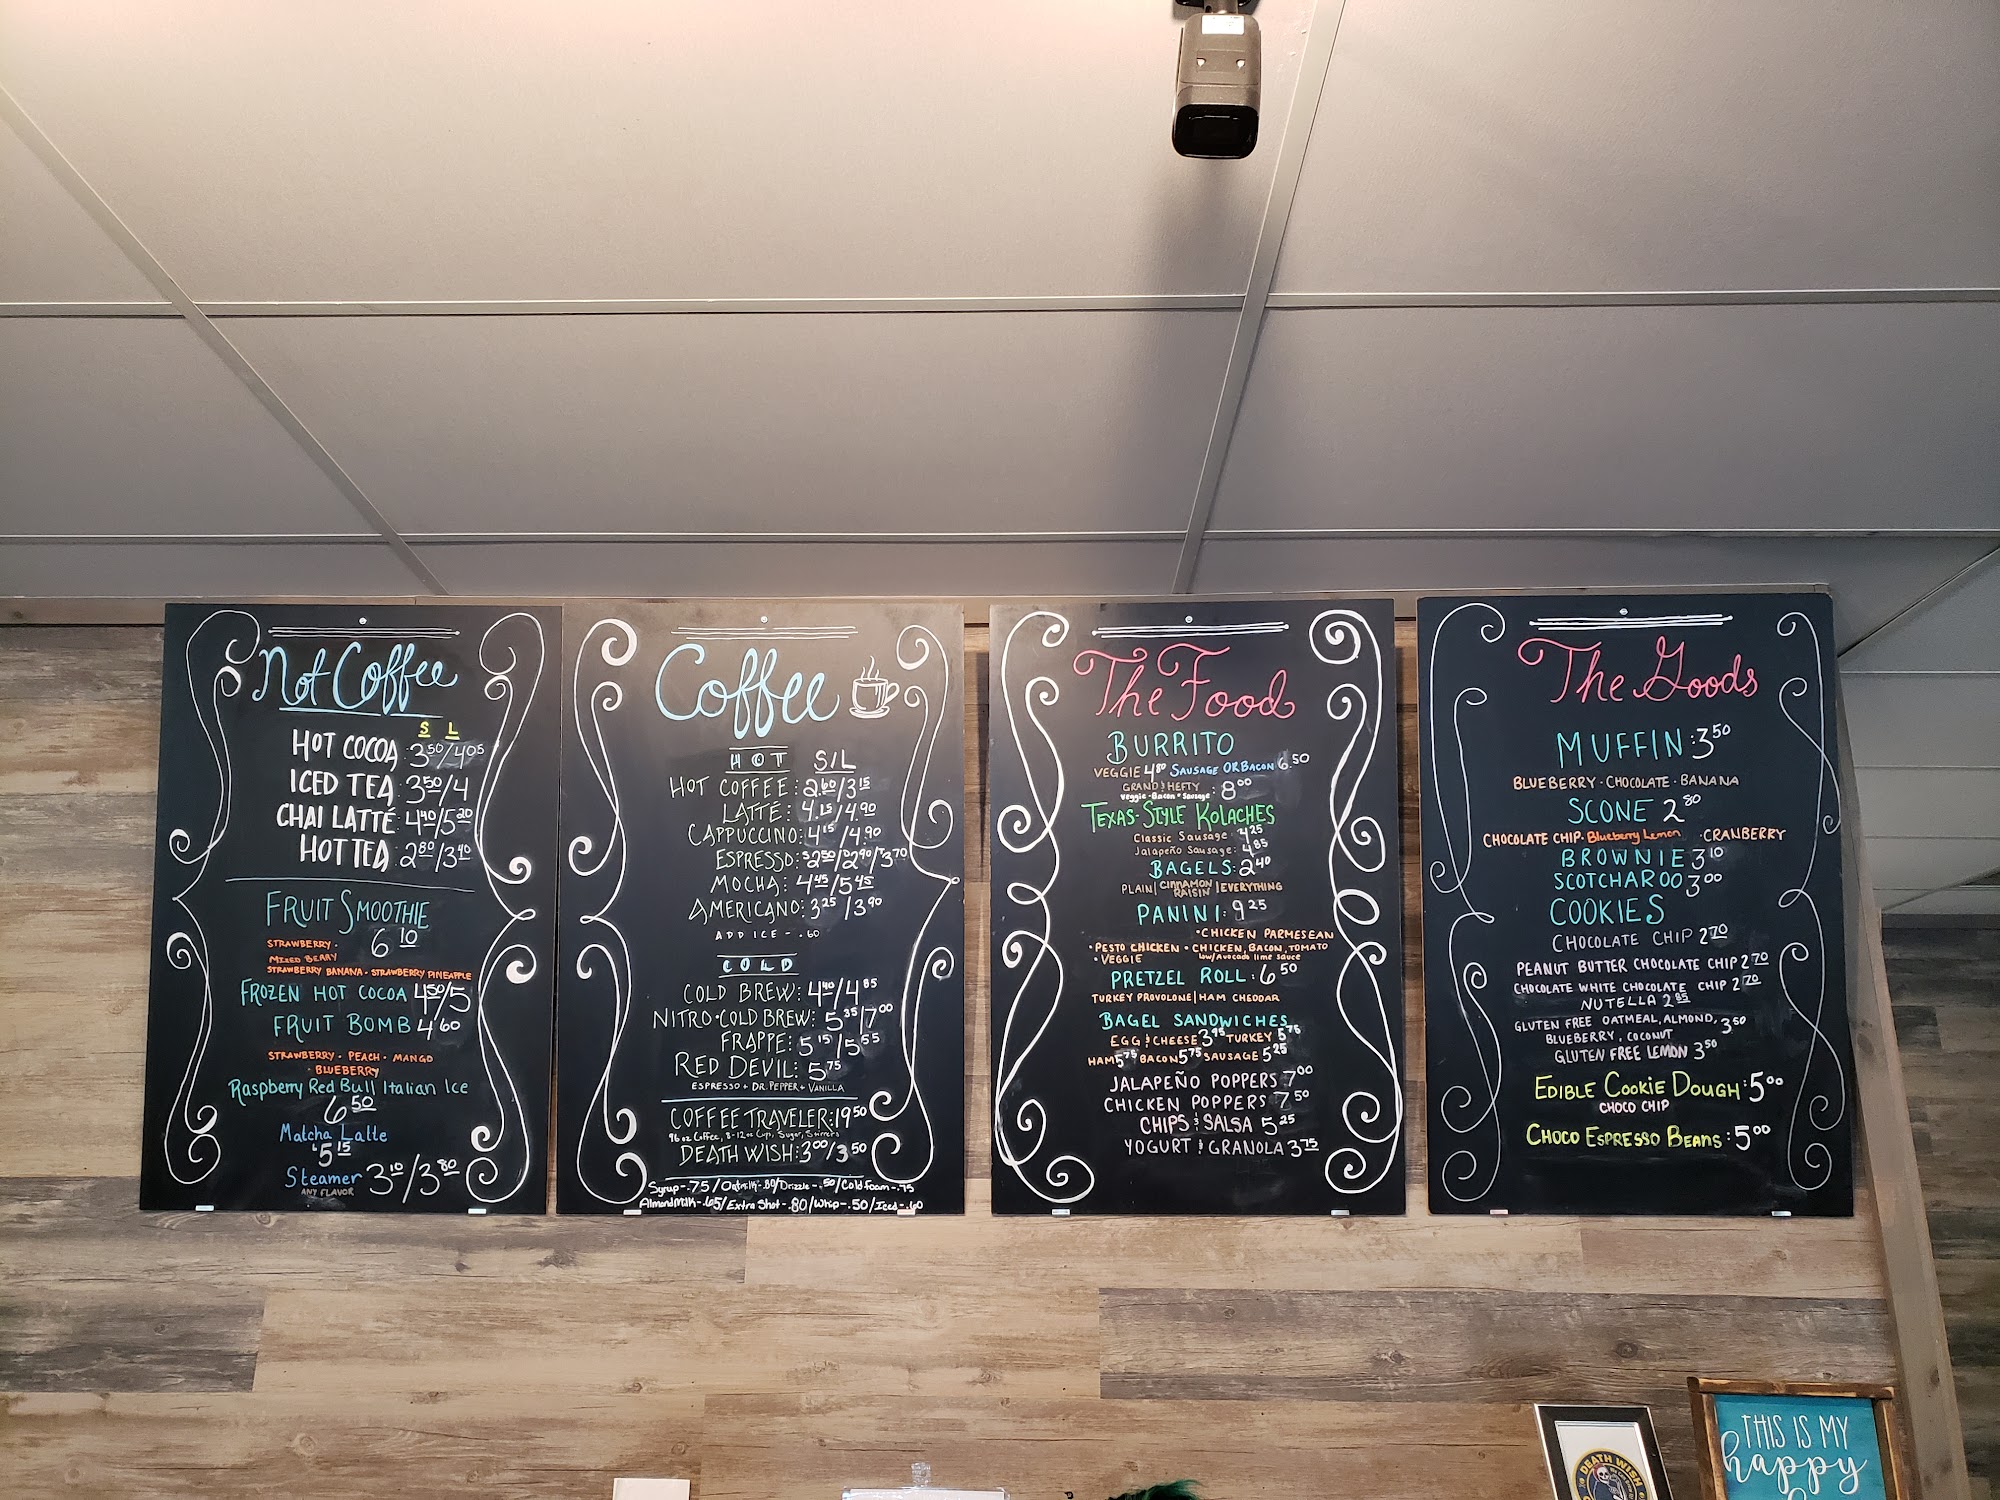 Not Coffee
S L
HOT COCOA : 3.50/4.05
ICED TEA : 3.50/4
CHAI LATTÉ : 4.40/5.20
HOT TEA : 2.80/3.40
FRUIT SMOOTHIE
6.10
STRAWBERRY ·
MIXED BERRY
STRAWBERRY BANANA · STRAWBERRY PINEAPPLE
FROZEN HOT COCOA 4.50/5
FRUIT BOMB 4.60
STRAWBERRY · PEACH · MANGO
· BLUEBERRY
Raspberry Red Bull Italian Ice
6.50
Matcha Latte
$5.15
Steamer 3.10/3.80
ANY FLAVOR
Coffee
HOT S/L
HOT COFFEE: 2.60/3.15
LATTÉ: 4.15/4.90
CAPPUCCINO: 4.15/4.90
ESPRESSO: S2.50/D2.90/T3.70
MOCHA: 4.45/5.45
AMERICANO: 3.25/3.90
ADD ICE - .60
COLD
COLD BREW: 4.40/4.85
NITRO·COLD BREW: 5.35/7.00
FRAPPE: 5.15/5.55
RED DEVIL: 5.75
ESPRESSO + DR. PEPPER + VANILLA
COFFEE TRAVELER: 19.50
96 oz Coffee, 8-12oz Cups, Sugar, Stirrers
DEATH WISH: 3.00/3.50
Syrup-.75/Oatmilk-.80/Drizzle-.50/Cold foam-.75
Almond Milk-.65/Extra Shot-.80/Whip-.50/Iced-.60
The Food
BURRITO
VEGGIE 4.80 SAUSAGE OR BACON 6.50
GRAND & HEFTY : 8.00
Veggie · Bacon · Sausage
TEXAS-STYLE KOLACHES
Classic Sausage : 4.25
Jalapeño Sausage : 4.85
BAGELS: 2.40
PLAIN | CINNAMON RAISIN | EVERYTHING
PANINI: 9.25
· CHICKEN PARMESEAN
· PESTO CHICKEN · CHICKEN, BACON, TOMATO
· VEGGIE w/Avocado lime sauce
PRETZEL ROLL: 6.50
TURKEY PROVOLONE | HAM CHEDDAR
BAGEL SANDWICHES
EGG & CHEESE 3.95 TURKEY 5.75
HAM 5.75 BACON 5.75 SAUSAGE 5.25
JALAPEÑO POPPERS 7.00
CHICKEN POPPERS 7.50
CHIPS & SALSA 5.25
YOGURT & GRANOLA 3.75
The Goods
MUFFIN: 3.50
BLUEBERRY · CHOCOLATE · BANANA
SCONE 2.80
CHOCOLATE CHIP · Blueberry Lemon · CRANBERRY
BROWNIE 3.10
SCOTCHAROO 3.00
COOKIES
CHOCOLATE CHIP 2.70
PEANUT BUTTER CHOCOLATE CHIP 2.70
CHOCOLATE WHITE CHOCOLATE CHIP 2.70
NUTELLA 2.85
GLUTEN FREE OATMEAL, ALMOND, 3.50
BLUEBERRY, COCONUT
GLUTEN FREE LEMON 3.50
EDIBLE COOKIE DOUGH: 5.00
CHOCO CHIP
CHOCO ESPRESSO BEANS: 5.00
DEATH WISH
THIS IS MY
happy